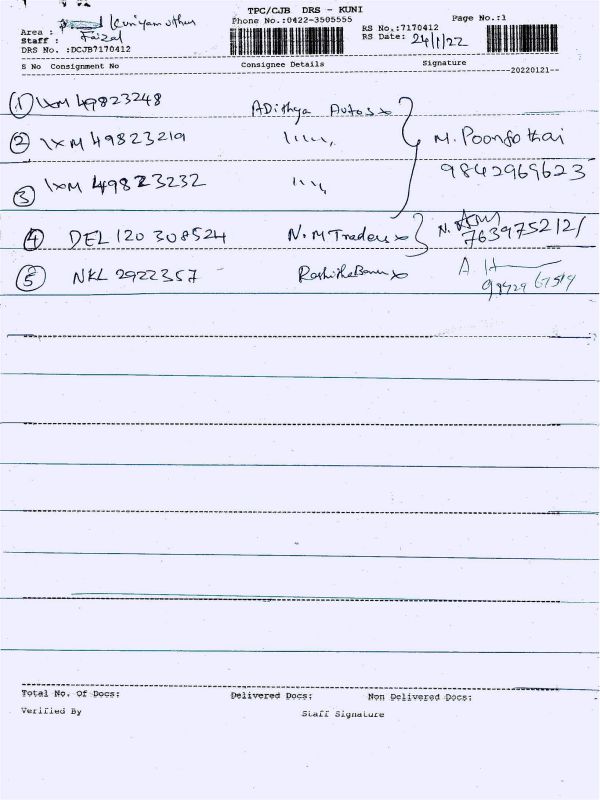 TPC/CJB DRS - KUNI
Phone No.:0422-3505555
Page No.:1
Area : Kuniyamuthur
Staff : Faizal
DRS No. :DCJB7170412
RS No.:7170412
RS Date: 24/1/22
S No Consignment No Consignee Details Signature
20220121
1 IXM 49823248 ADithya Autos
2 IXM 49823219 ,,,,, M. Poongothai
3 IXM 49823232 ,,,, 9842969623
4 DEL 120 308524 N.M Traders N.
7639752121
5 NKL 2922357 A. H
Total No. Of Docs: Delivered Docs: Non Delivered Docs:
Verified By Staff Signature